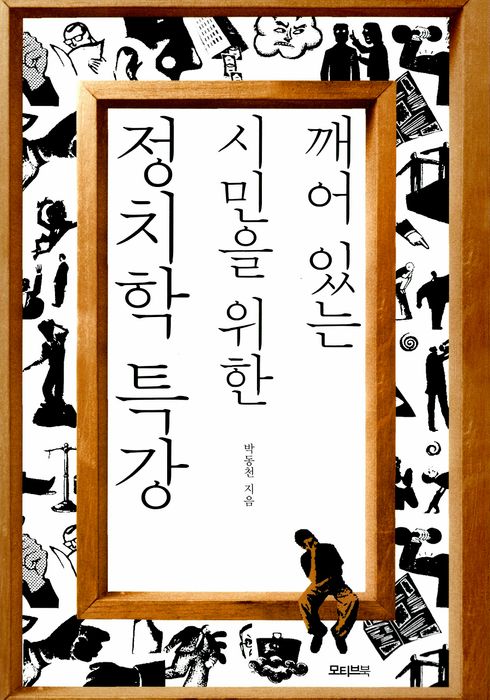 깨어 있는
시민을 위한
정치학 특강
박동천 지음
모티브북